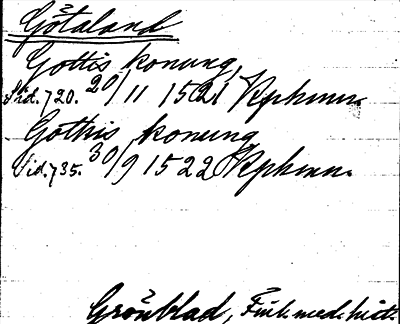 Götaland
Gottis konung,
Sid. 720. 20/11 1521 Kphmn.
Gothis konung
Sid. 735. 30/9 1522 Kphmn.
Grönblad, Finl. med. hist.